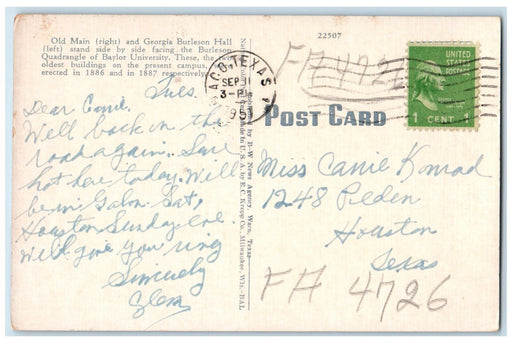 Old Main (right) and Georgia Burleson Hall
(left) stand side by side facing the Burleson
Quadrangle of Baylor University. These, the two
oldest buildings on the present campus, were
erected in 1886 and in 1887 respectively.
22507
FA 4726
WACO, TEXAS
SEP 11
3-PM
UNITED
STATES
POSTAGE
1 CENT 1
POST CARD
by B-W News Agency, Waco, Texas
Made in U. S. A. by E. C. Kropp Co., Milwaukee, Wis.
Tues.
Dear Carrie.
Well back on the
road again. Sure
hot here today. Will
be in Galv. Sat,
Houston Sunday eve.
Will give you ring
Sincerely
Glen
Miss Carrie Konrad
1248 Peden
Houston
Texas
FA 4726